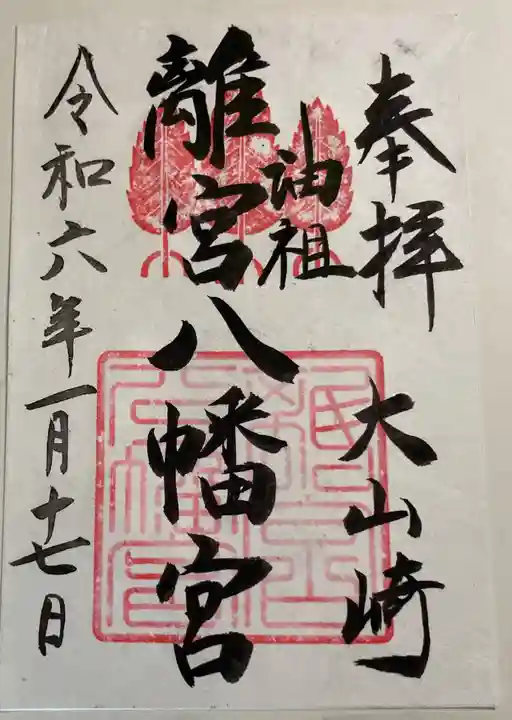 奉拝 大山崎
油祖
離宮八幡宮
令和六年一月十七日